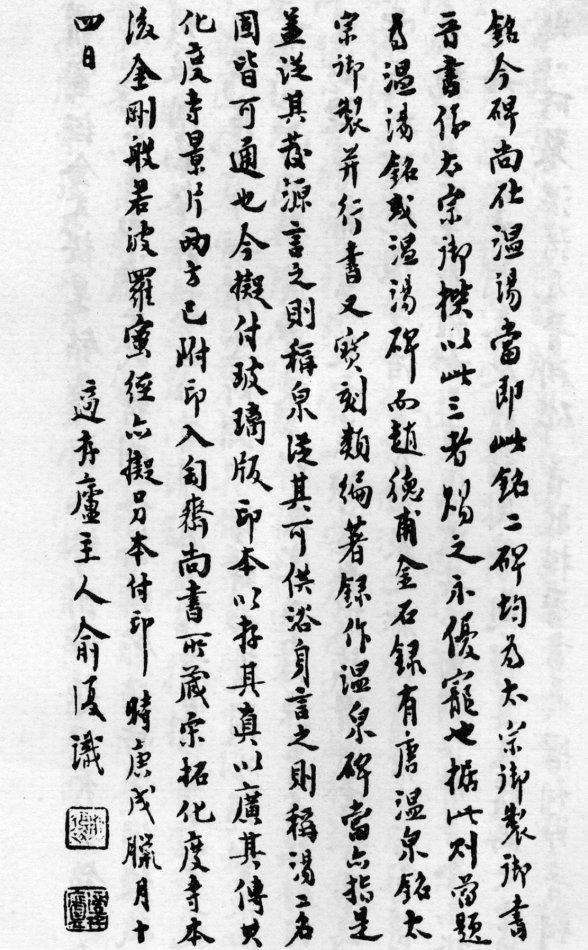 銘今碑尚在温湯當即此銘二碑均為太宗御製御書
晉書係太宗御撰以此三者賜之示優寵也据此則舊題
為温湯銘或温湯碑而趙德甫金石録有唐温泉銘太
宗御製并行書又寶刻類編著録作温泉碑當亦指是
蓋從其發源言之則稱泉從其可供浴身言之則稱湯二名
固皆可通也今擬付玻璃版印本以存其真以廣其傳其
化度寺景片兩方已附印入匋齋尚書所藏宋拓化度寺本
後金剛般若波羅蜜經亦擬另本付印時庚戌臘月十
四日
適存廬主人俞復識